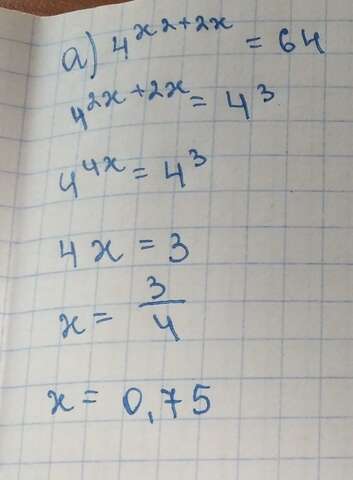 а) 4^{x2+2x} = 64
4^{2x+2x} = 4^3
4^{4x} = 4^3
4x = 3
x = 3/4
x = 0,75